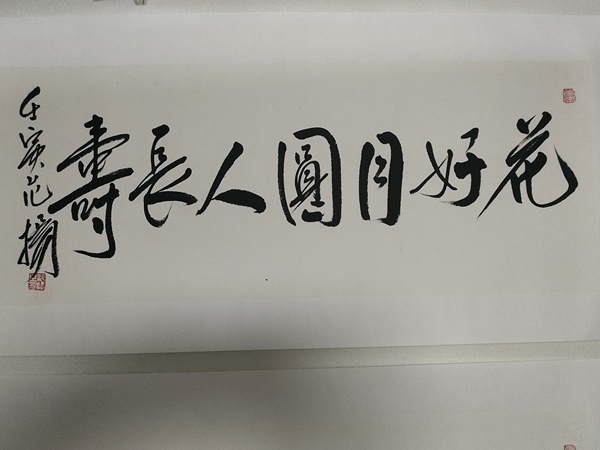 花好月圓人長壽
壬寅范揚